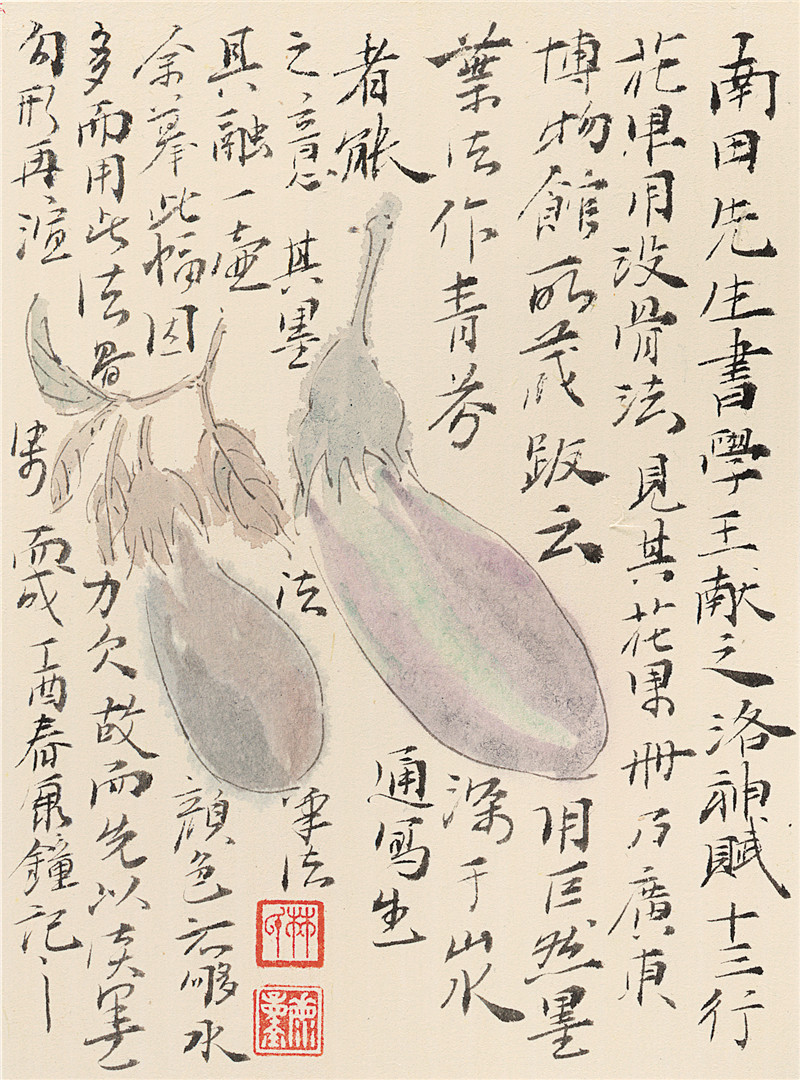 南田先生書學王献之洛神賦十三行
花果用没骨法見其花果册乃廣東
博物館所藏跋云用巨然墨
葉法作青芬深于山水
者能通寫生
之意其墨法筆法
其融一壺
余摹此幅因顏色不够水
多而用此法畧力欠故而先以淡墨
勾形再渲而成丁酉春鐘記之